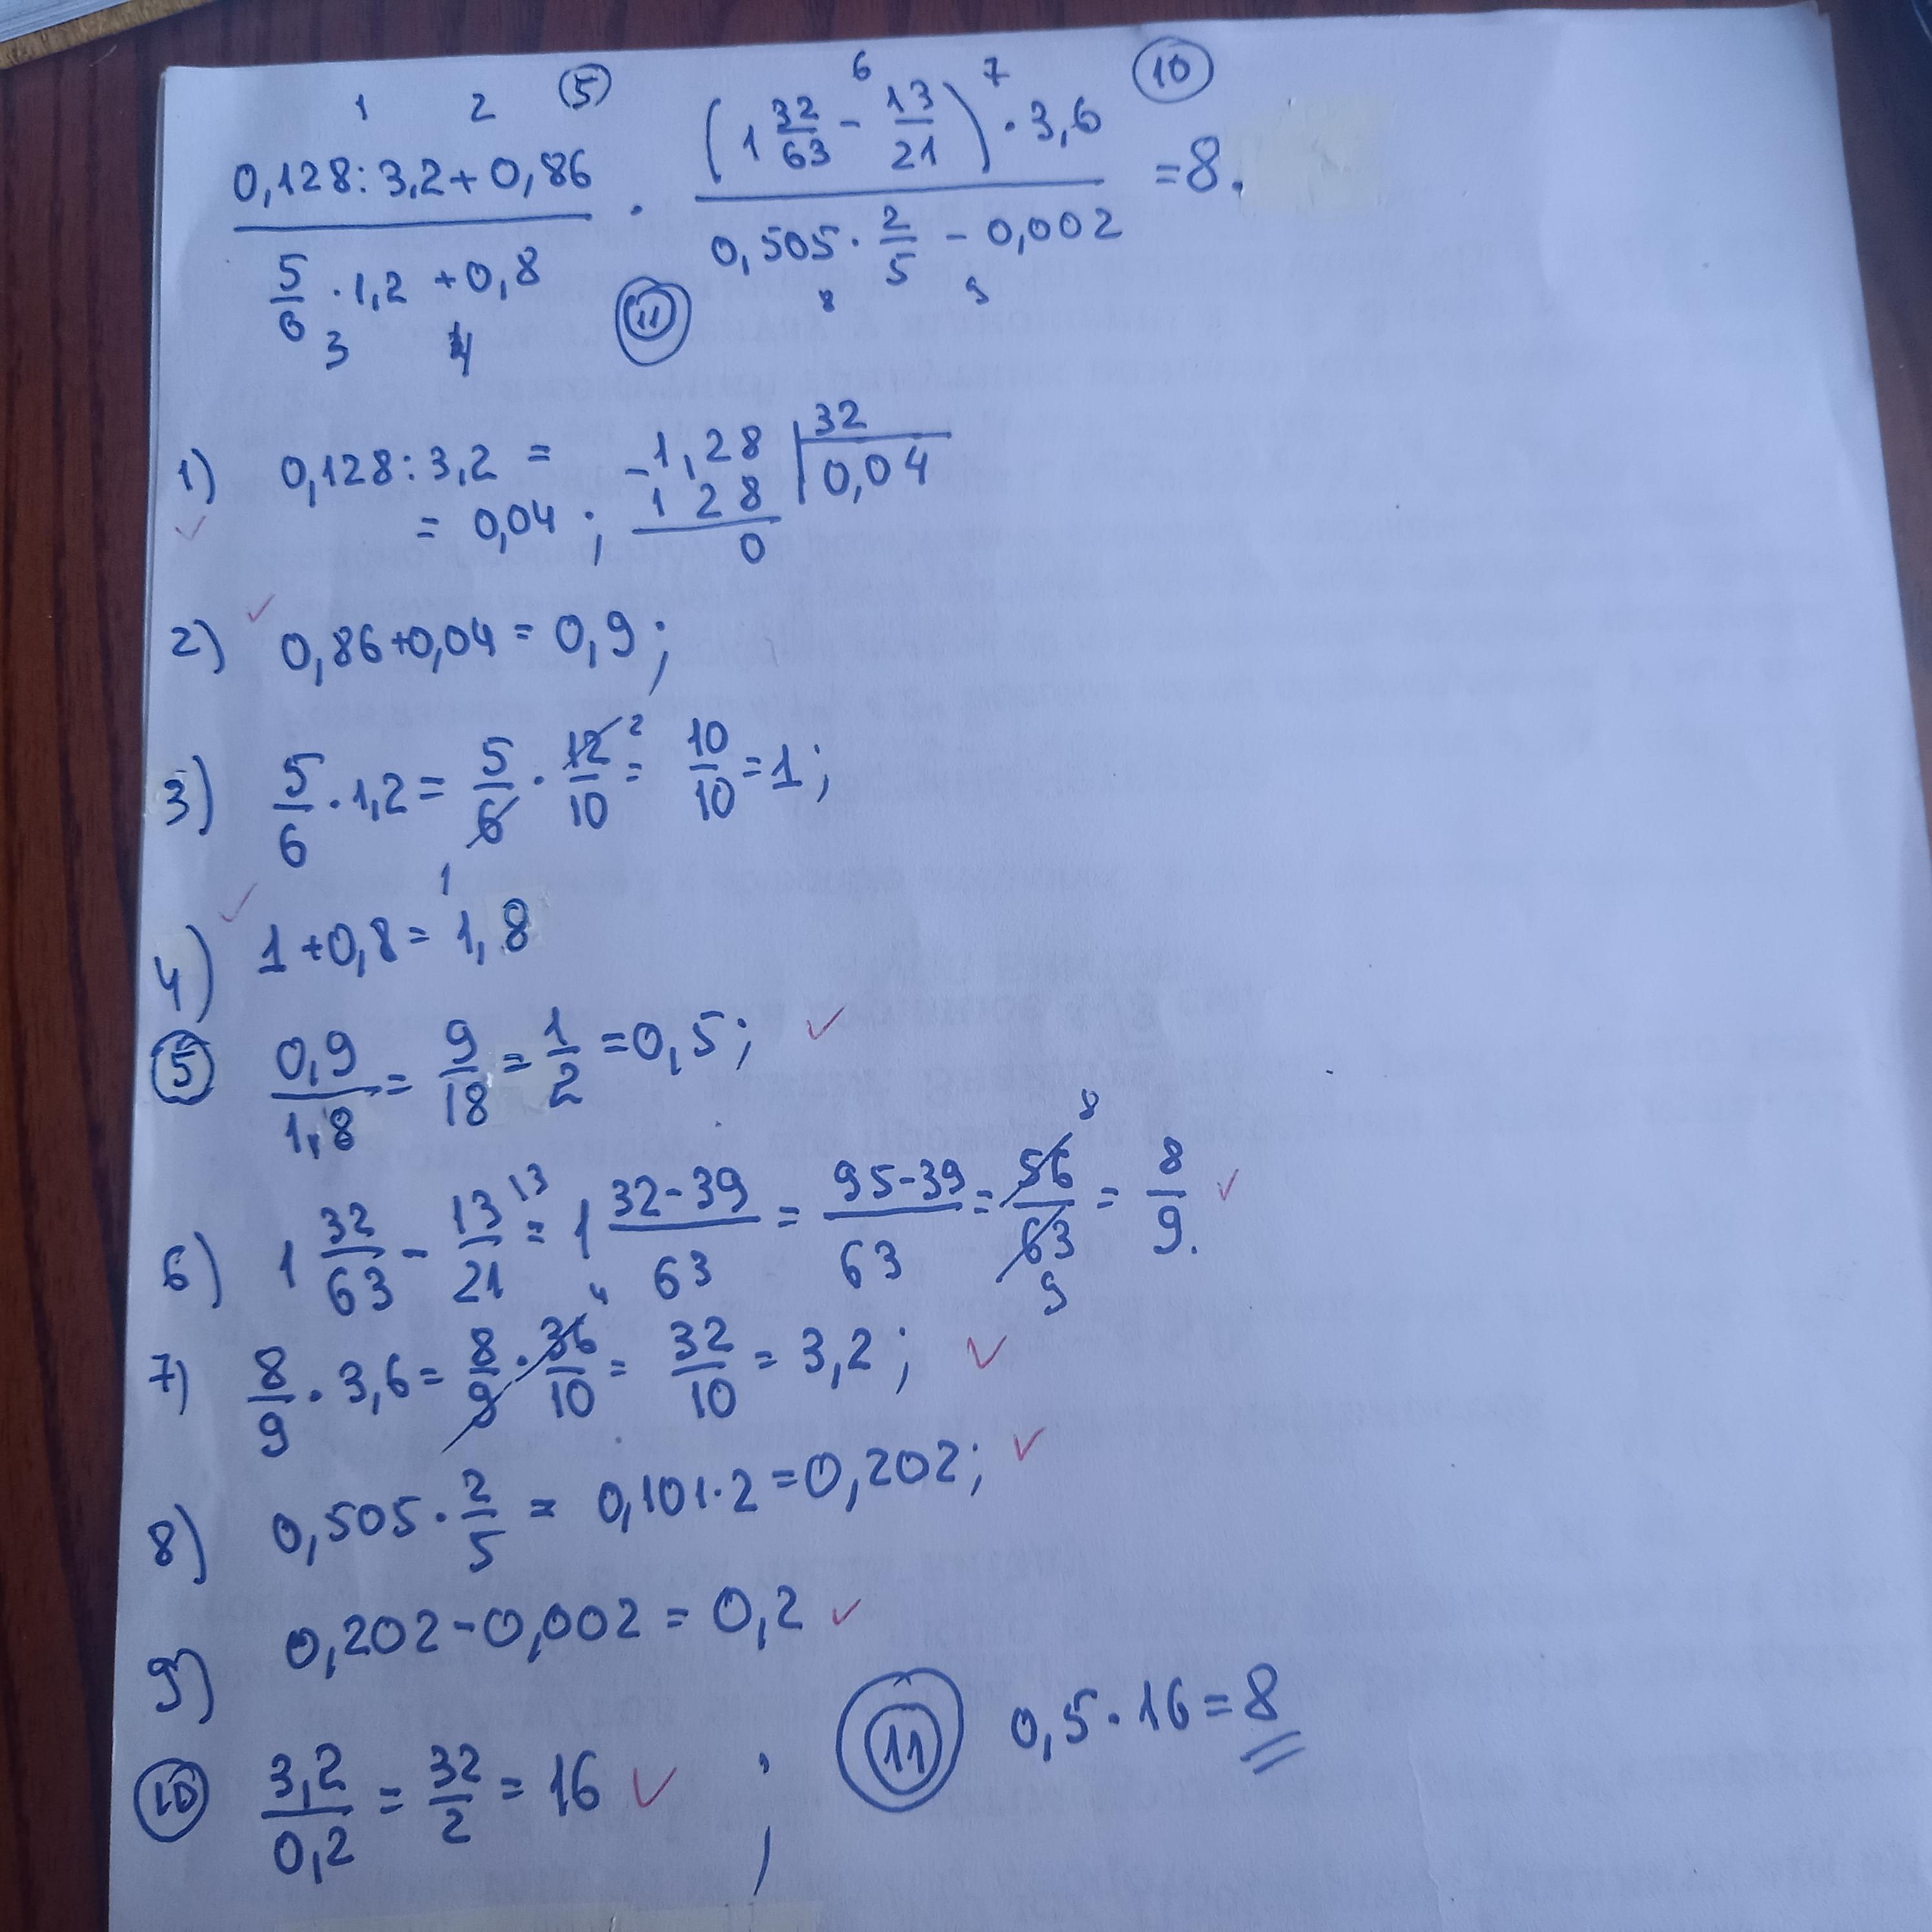 1 2 (5) 6 7 (10)
(0,128:3,2+0,86)/(5/6·1,2+0,8) · ((1 32/63 - 13/21)·3,6)/(0,505·2/5-0,002) =8.
3 4 (11) 8 9
1) 0,128:3,2 = -1,28 | 32
= 0,04; 128 0,04
0
2) 0,86+0,04=0,9;
3) 5/6·1,2=5/6·12/10 2=10/10=1;
1
4) 1+0,8=1,8
(5) 0,9/1,8=9/18=1/2=0,5;
6) 1 32/63 - 13/21 13 = 1 (32-39)/63 = (95-39)/63 = 56/63 8 9 = 8/9.
7) 8/9·3,6=8/9·36/10 4=32/10=3,2;
8) 0,505·2/5=0,101·2=0,202;
9) 0,202-0,002=0,2
(10) 3,2/0,2=32/2=16; (11) 0,5·16=8